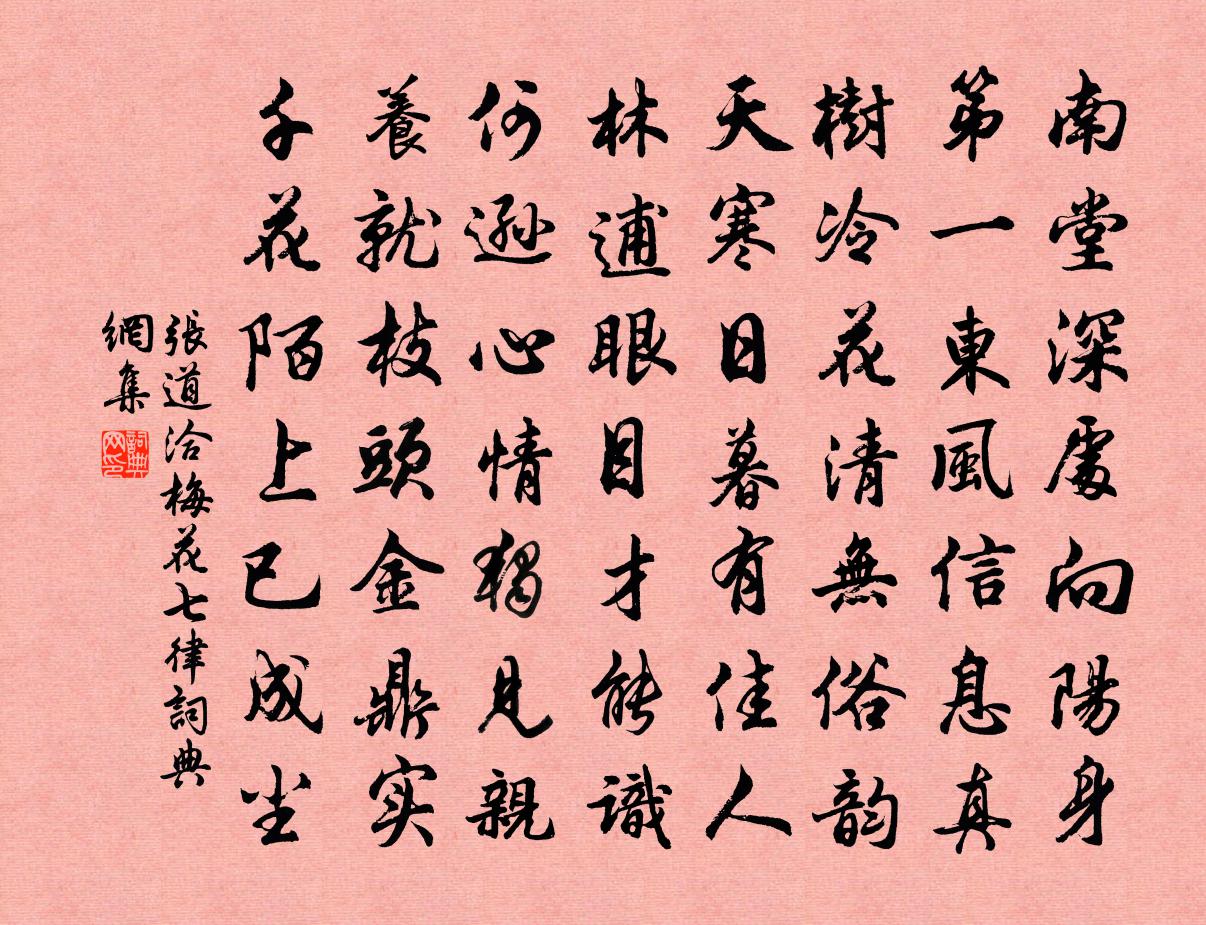 南堂深處向陽身
第一東風信息真
樹冷花清無俗韵
天寒日暮有佳人
林逋眼目才能識
何遜心情獨見親
養就枝頭金鼎实
千花陌上已成尘
張道洽梅花七律詞典
網集
詞典
网印